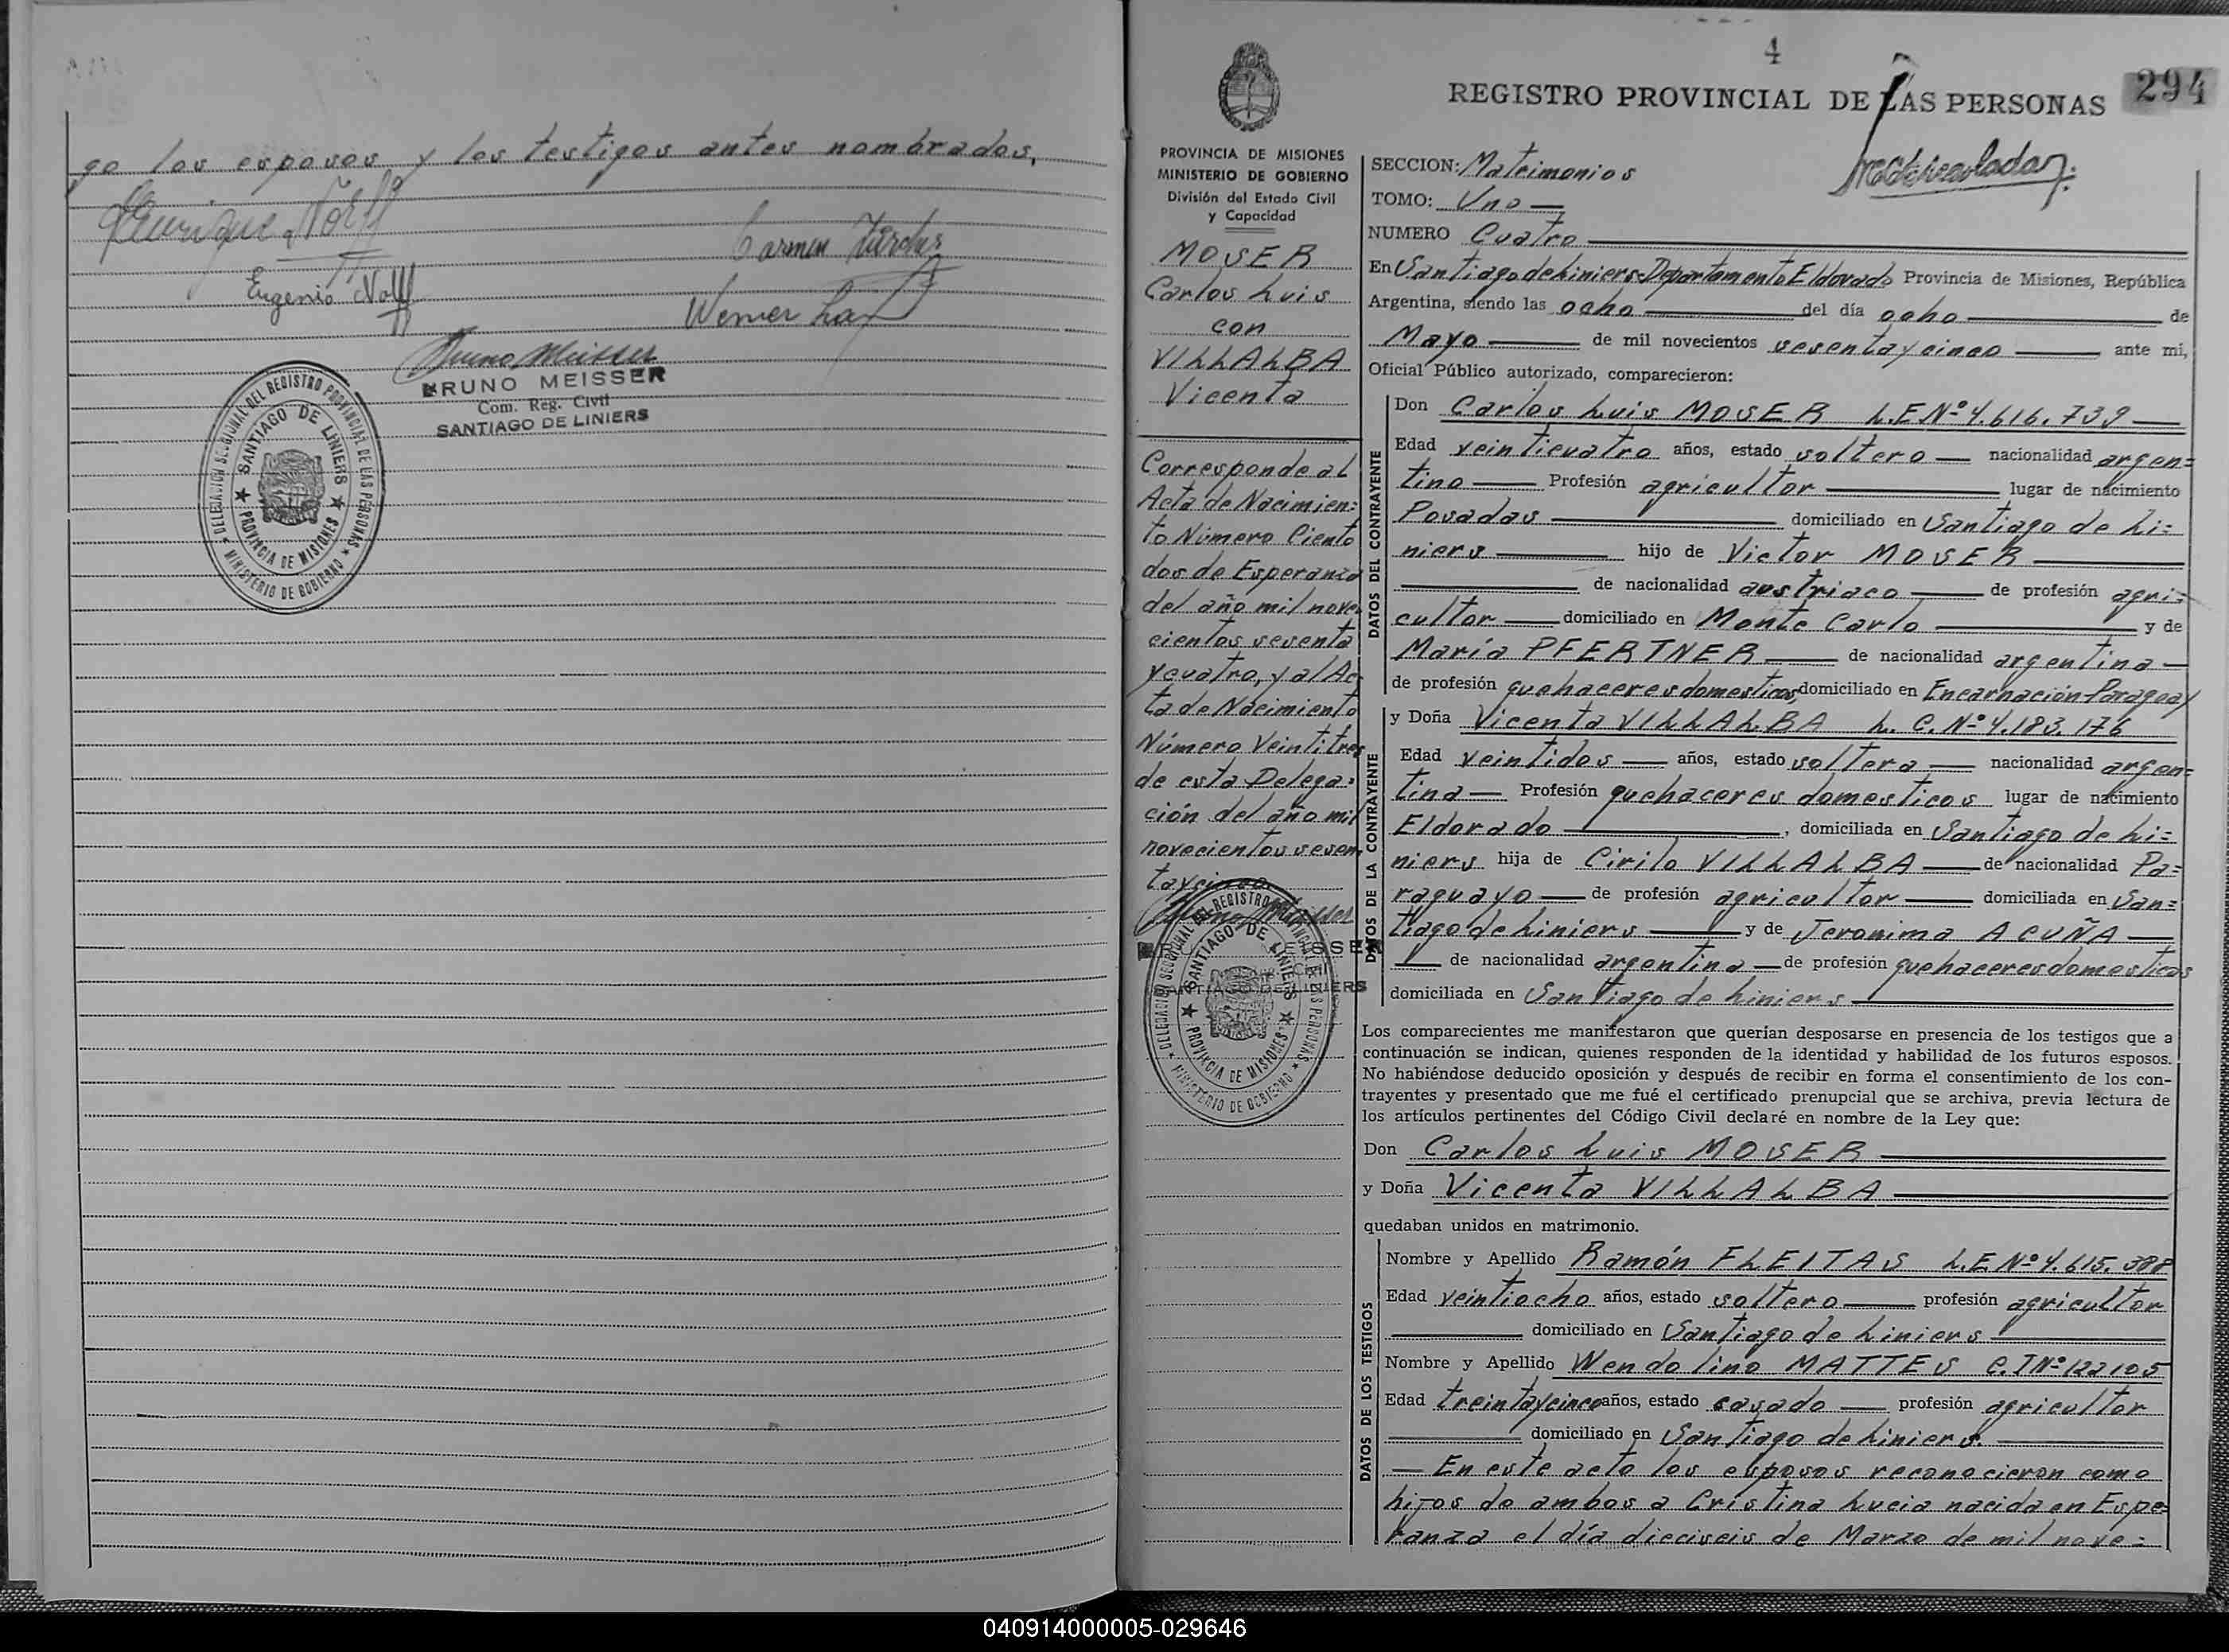 go los esposos y los testigos antes nombrados,
Eugenio Nolff
Carmen
Werner
Bruno Meisser
BRUNO MEISSER
Com. Reg. Civil
SANTIAGO DE LINIERS
DELEGACION SECCIONAL DEL REGISTRO PROVINCIAL DE LAS PERSONAS
SANTIAGO DE LINIERS
PROVINCIA DE MISIONES
MINISTERIO DE GOBIERNO
4
REGISTRO PROVINCIAL DE LAS PERSONAS
294
PROVINCIA DE MISIONES
MINISTERIO DE GOBIERNO
División del Estado Civil
y Capacidad
MOSER
Carlos Luis
con
VILLALBA
Vicenta
Corresponde al
Acta de Nacimien=
to Número Ciento
dos de Esperanza
del año mil nove
cientos sesenta
y cuatro, y al Ac
ta de Nacimiento
Número Veintitres
de esta Delega=
ción del año mil
novecientos sesen
taycinco.
DELEGACION SECCIONAL DEL REGISTRO PROVINCIAL DE LAS PERSONAS
SANTIAGO DE LINIERS
PROVINCIA DE MISIONES
MINISTERIO DE GOBIERNO
SECCION: Matrimonios
TOMO: Uno
NUMERO Cuatro
En Santiago de Liniers-Departamento Eldorado Provincia de Misiones, República
Argentina, siendo las ocho del día ocho de
Mayo de mil novecientos sesentaycinco ante mi,
Oficial Público autorizado, comparecieron:
DATOS DEL CONTRAYENTE
Don Carlos Luis MOSER L.E Nº 4.616.739
Edad veinticuatro años, estado soltero nacionalidad argen=
tino Profesión agricultor lugar de nacimiento
Posadas domiciliado en Santiago de Li=
niers hijo de Victor MOSER
de nacionalidad austriaco de profesión agri=
cultor domiciliado en Monte Carlo y de
María PFERTNER de nacionalidad argentina
de profesión quehaceres domesticos, domiciliado en Encarnación-Paraguay
DATOS DE LA CONTRAYENTE
y Doña Vicenta VILLALBA L. C. Nº 4.183.176
Edad veintidos años, estado soltera nacionalidad argen=
tina Profesión quehaceres domesticos lugar de nacimiento
Eldorado, domiciliada en Santiago de Li=
niers hija de Cirilo VILLALBA de nacionalidad Pa=
raguayo de profesión agricultor domiciliada en San=
tiago de Liniers y de Jeronima ACUÑA
de nacionalidad argentina de profesión quehaceres domesticos
domiciliada en Santiago de Liniers
Los comparecientes me manifestaron que querían desposarse en presencia de los testigos que a
continuación se indican, quienes responden de la identidad y habilidad de los futuros esposos.
No habiéndose deducido oposición y después de recibir en forma el consentimiento de los con-
trayentes y presentado que me fué el certificado prenupcial que se archiva, previa lectura de
los artículos pertinentes del Código Civil declaré en nombre de la Ley que:
Don Carlos Luis MOSER
y Doña Vicenta VILLALBA
quedaban unidos en matrimonio.
DATOS DE LOS TESTIGOS
Nombre y Apellido Ramón FLEITAS L.E. Nº 4.615.388
Edad veintiocho años, estado soltero profesión agricultor
domiciliado en Santiago de Liniers
Nombre y Apellido Wendolino MATTES C.I Nº 122105
Edad treintaycinco años, estado casado profesión agricultor
domiciliado en Santiago de Liniers.
En este acto los esposos reconocieron como
hijos de ambos a Cristina Lucia nacida en Espe=
ranza el día dieciseis de Marzo de mil nove=
040914000005-029646